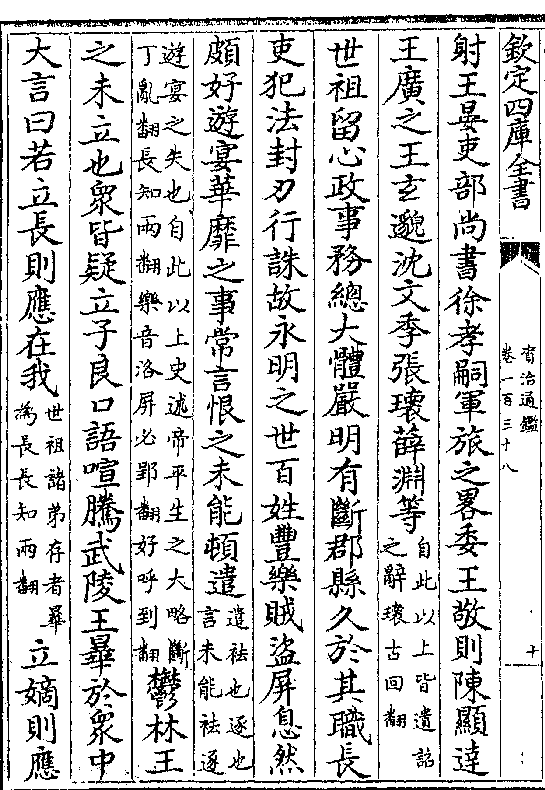 欽定四庫全書
資治通鑑
卷一百三十八
十
射王晏吏部尚書徐孝嗣軍旅之畧委王敬則陳顯達
王廣之王玄邈沈文季張瓌薛淵等自此以上皆遺詔之辭瓌古回翻
世祖留心政事務總大體嚴明有斷郡縣久於其職長
吏犯法封刃行誅故永明之世百姓豐樂賊盜屏息然
頗好遊宴華靡之事常言恨之未能頓遣遣祛也逐也言未能祛逐
遊宴之失也自此以上史述帝平生之大略斷丁亂翻長知兩翻樂音洛屏必郢翻好呼到翻鬱林王
之未立也衆皆疑立子良口語喧騰武陵王曅於衆中
大言曰若立長則應在我世祖諸弟存者曅為長長知兩翻立嫡則應